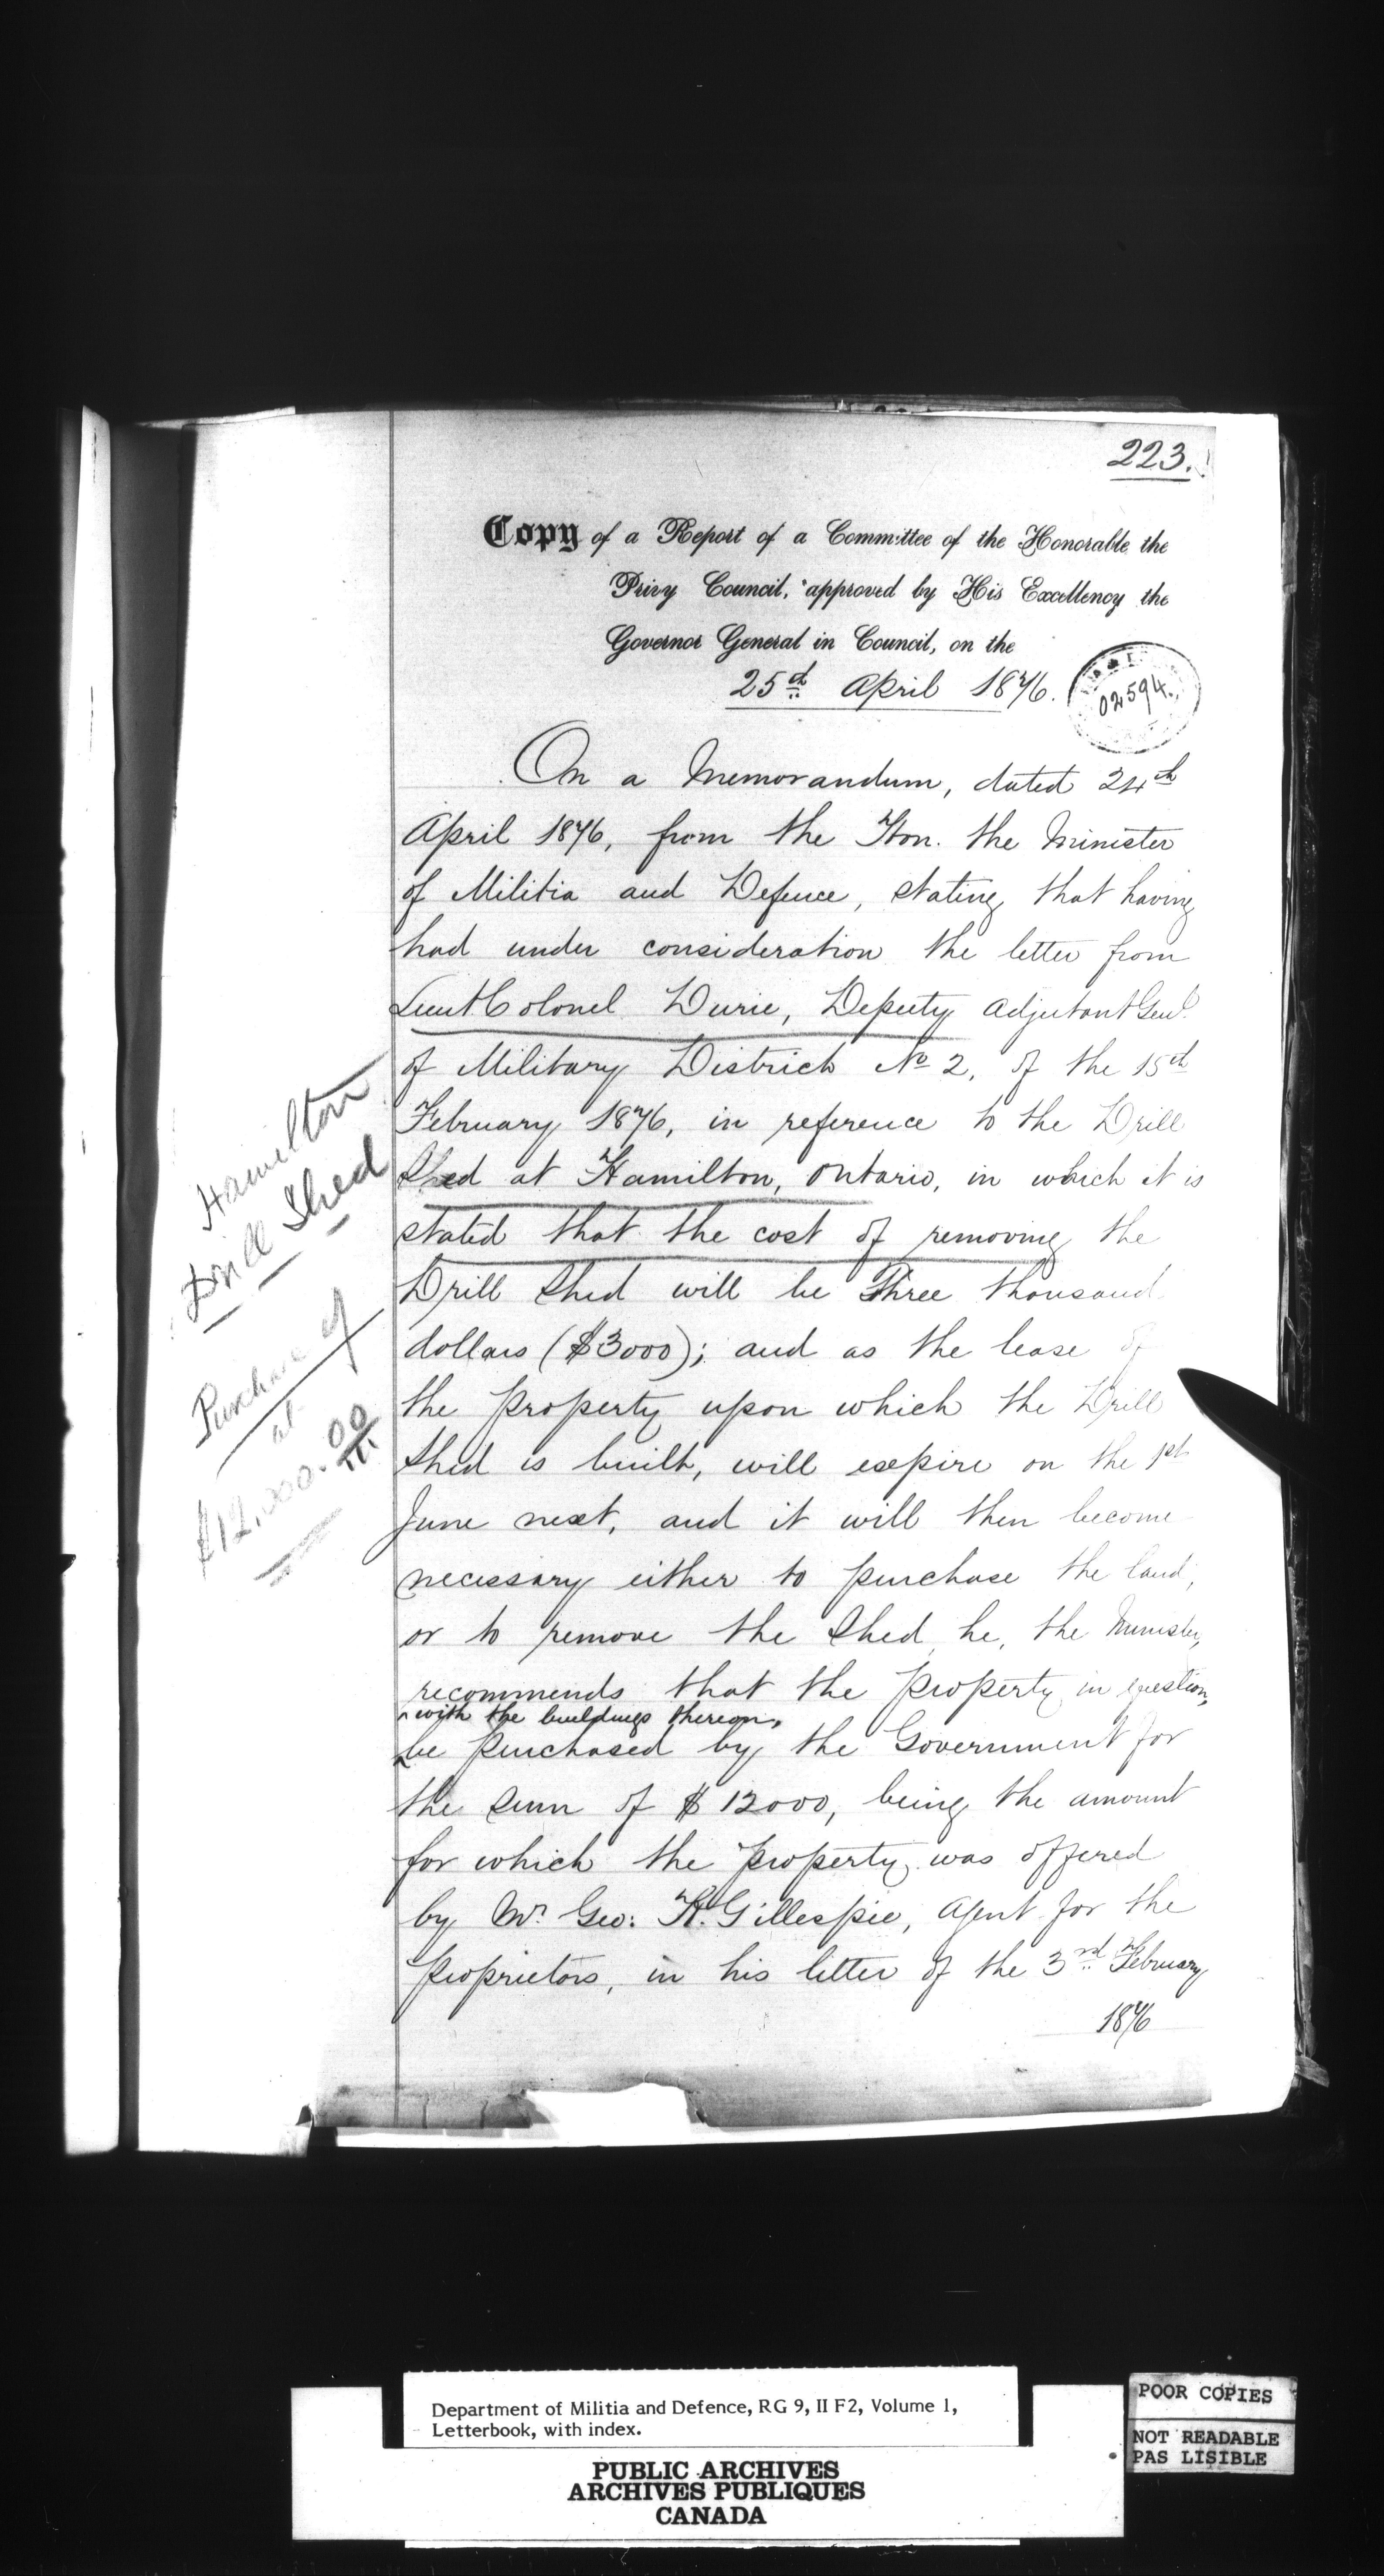 223.
Copy of a Report of a Committee of the Honorable the
Privy Council, approved by His Excellency the
Governor General in Council, on the
25th April 1876.
02594
On a Memorandum, dated 24th
April 1876, from the Hon. the Minister
of Militia and Defence, stating that having
had under consideration the letter from
Lieut Colonel Durie, Deputy Adjutant Genl.
of Military District No 2, of the 15th
February 1876, in reference to the Drill
Shed at Hamilton, Ontario, in which it is
stated that the cost of removing the
Drill Shed will be Three thousand
dollars ($3000); and as the lease of
the property upon which the Drill
Shed is built, will expire on the 1st
June next, and it will then become
necessary either to purchase the land,
or to remove the Shed, he, the Minister,
recommends that the property in question,
with the buildings thereon,
be purchased by the Government for
the sum of $12000, being the amount
for which the property was offered
by Mr. Geo: H. Gillespie, Agent for the
proprietors, in his letter of the 3rd February
1876
Hamilton
Drill Shed
Purchase of
at
$12,000.00
Department of Militia and Defence, RG 9, II F2, Volume 1,
Letterbook, with index.
PUBLIC ARCHIVES
ARCHIVES PUBLIQUES
CANADA
POOR COPIES
NOT READABLE
PAS LISIBLE